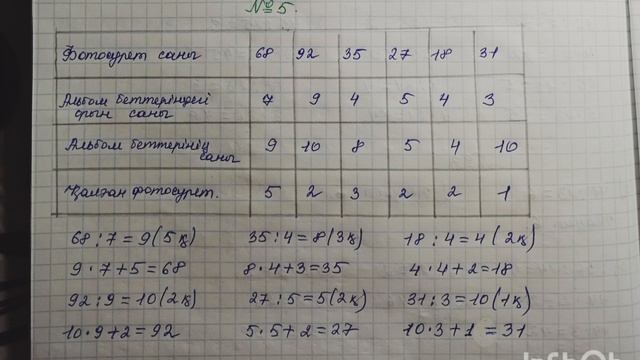 №5.
Фотосурет саны 68 92 35 27 18 31
Альбом беттеріндегі
орын саны 7 9 4 5 4 3
Альбом беттерінің
саны 9 10 8 5 4 10
Қалған фотосурет. 5 2 3 2 2 1
68:7=9(5қ) 35:4=8(3қ) 18:4=4(2қ)
9·7+5=68 8·4+3=35 4·4+2=18
92:9=10(2қ) 27:5=5(2қ) 31:3=10(1қ)
10·9+2=92 5·5+2=27 10·3+1=31